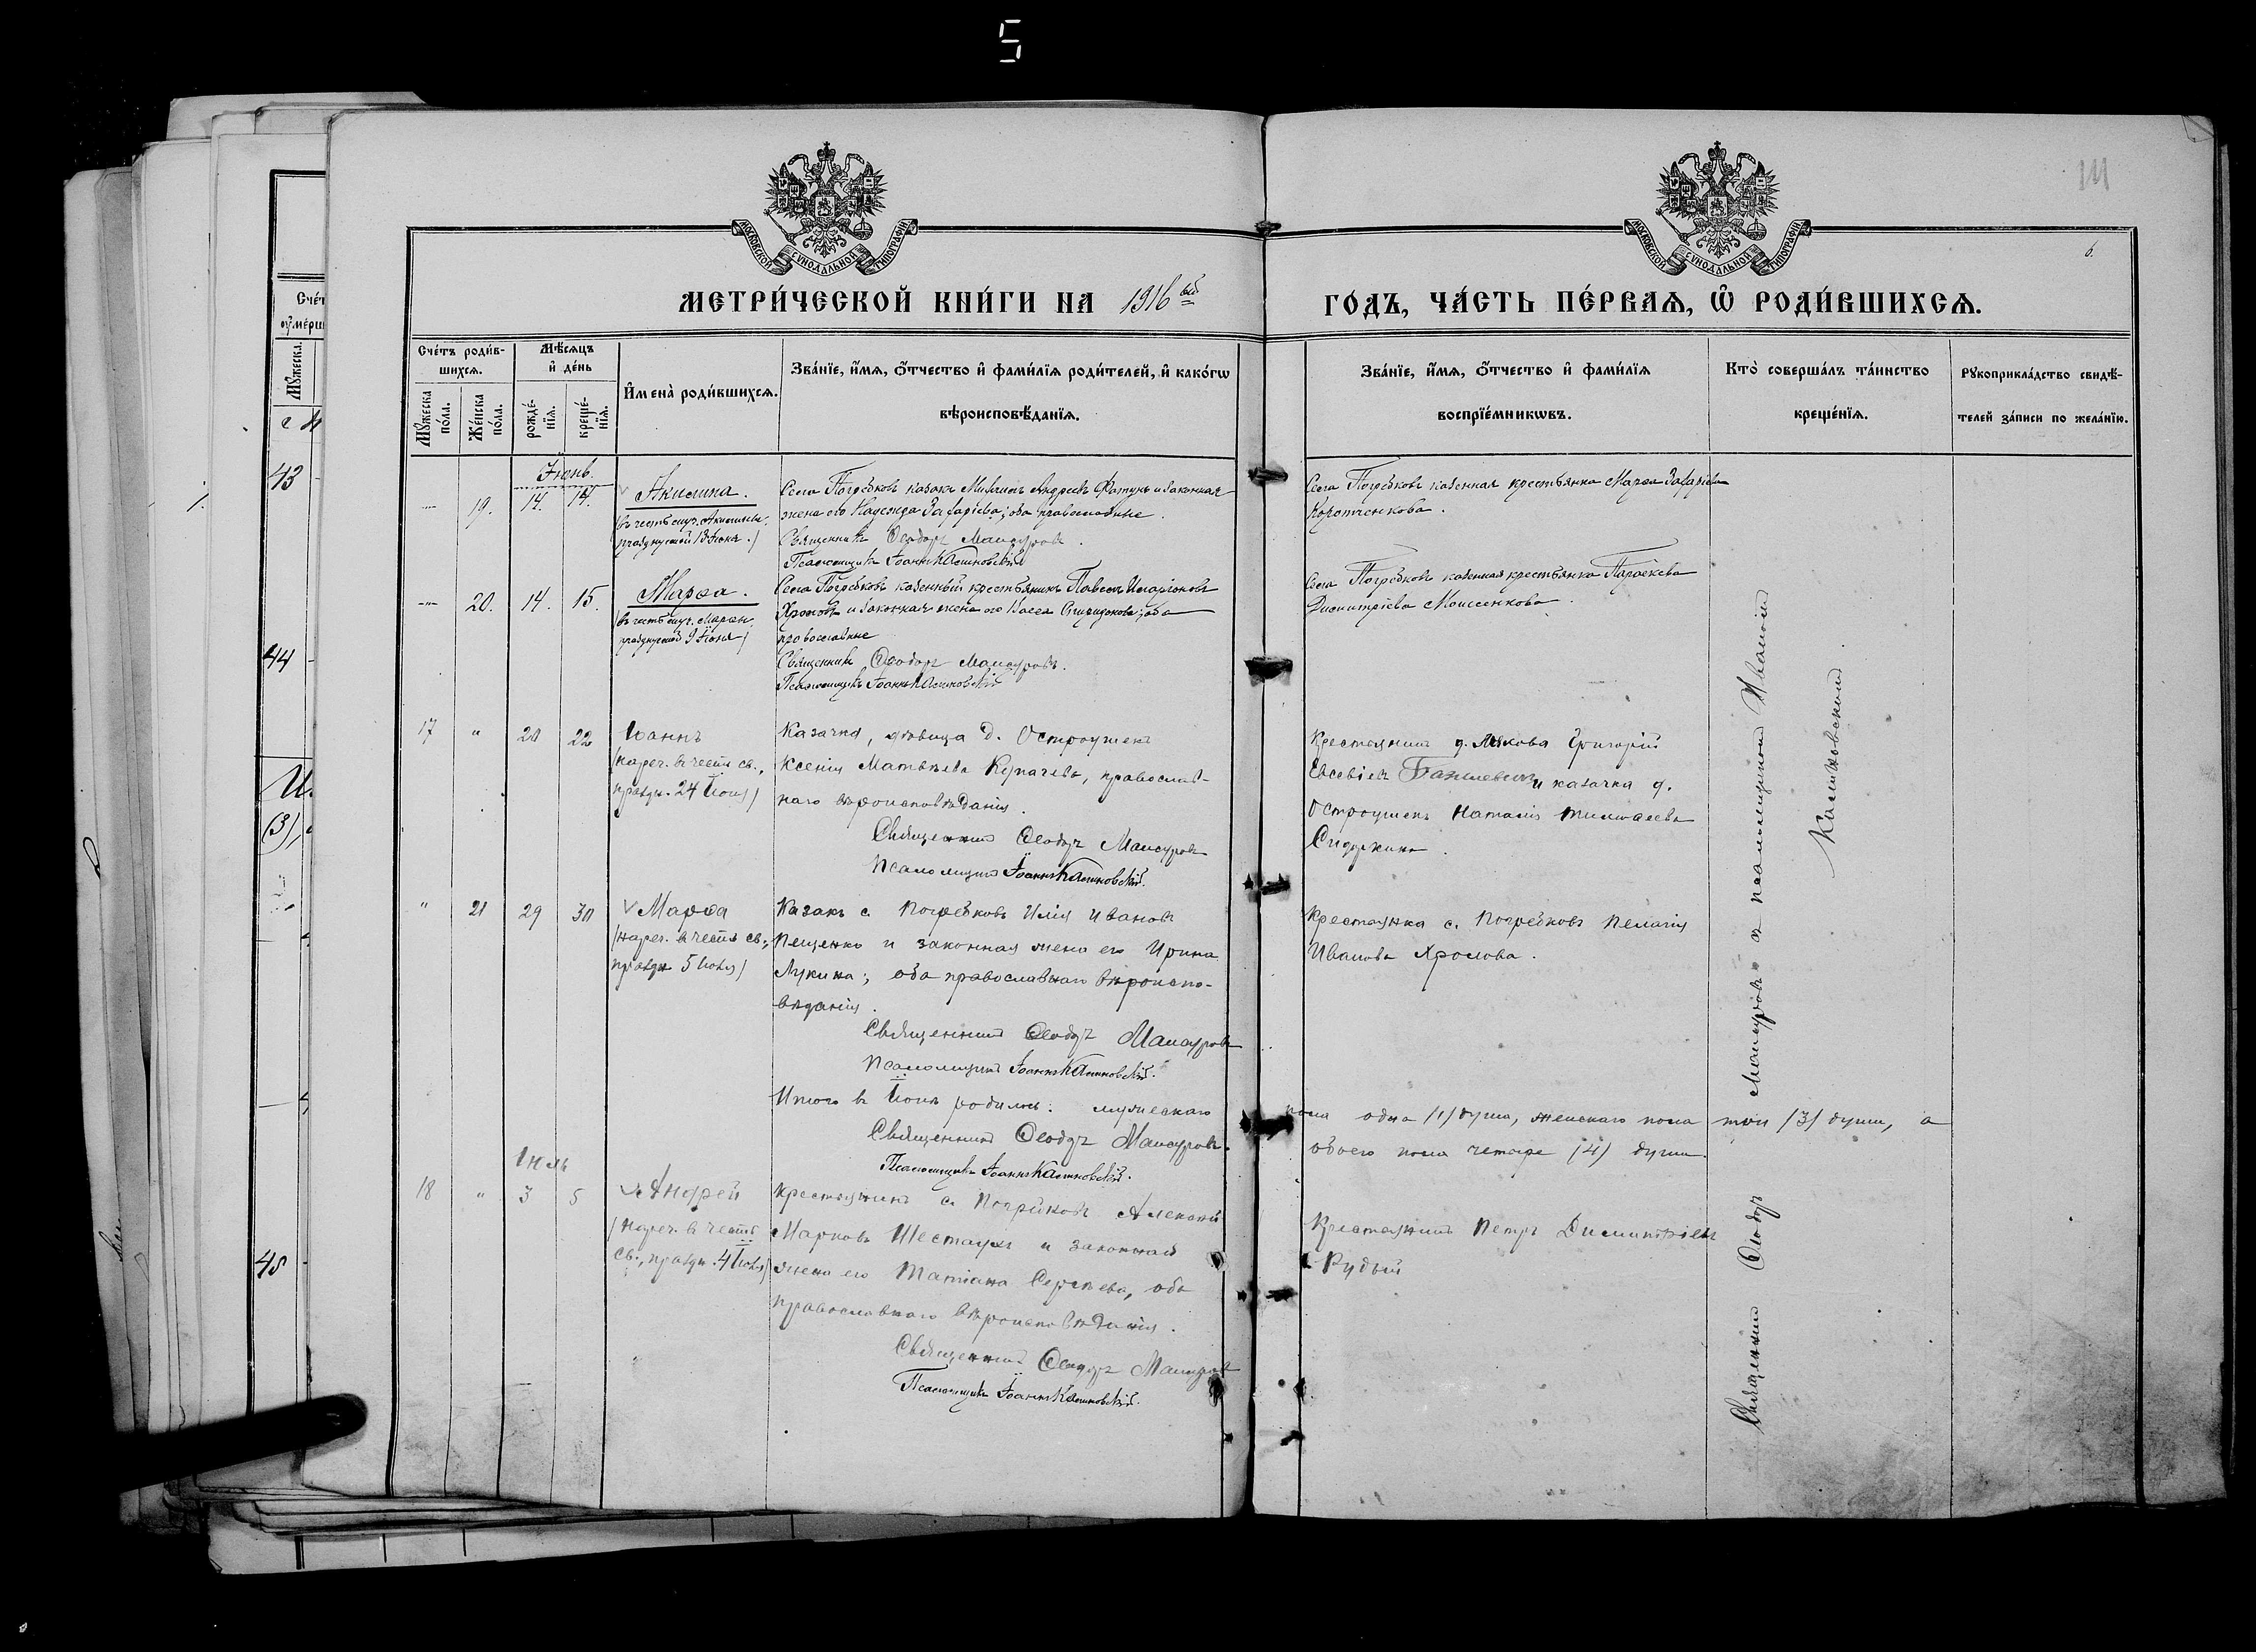 5
111
6.
МОСКОВСКОЙ СѴНОДАЛЬНОЙ ТИПОГРАФІИ
МОСКОВСКОЙ СѴНОДАЛЬНОЙ ТИПОГРАФІИ
МЕТРИ́ЧЕСКОЙ КНИ́ГИ НА 1916 ый
ГО́ДЪ, ЧА́СТЬ ПЕ́РВАЯ, Ѡ҆ РОДИ́ВШИХСЯ.
Сче́тъ роди́в-
шихся.
Мꙋ́жеска по́ла.
Же́нска по́ла.
Мѣ́сяцъ
и҆ де́нь
рожде́-
нїя.
креще́-
нїя.
И҆мена̀ роди́вшихся.
Зва́нїе, и҆́мя, ѻ҆́тчество и҆ фами́лїя роди́телей, и҆ како́гѡ
вѣроисповѣ́данїя.
Зва́нїе, и҆́мя, ѻ҆́тчество и҆ фами́лїя
воспрїе́мникѡвъ.
Кто̀ соверша́лъ та́инство
креще́нїя.
Рꙋкоприкла́дство свидѣ́-
телей за́писи по жела́нїю.
Іюнь.
19. 14. 14. Акилина.
(въ честь муч. Акилины, празднуемой 13 Іюня.)
Села Погребковъ казакъ Михаилъ Андреевъ и законная
жена его Надежда Захаріева; оба православные.
Священникъ Ѳеодоръ Мансуровъ.
Псаломщикъ Іоаннъ Калиновскій
Села Погребковъ казенная крестьянка Марѳа Захаріева
Коротченкова.
20. 14. 15. Марѳа.
(въ честь муч. Марѳы, празднуемой 9 Іюня)
Села Погребковъ казенный крестьянинъ Павелъ Иларіоновъ
Хромовъ и законная жена его Васса Спиридонова; оба
православные
Священникъ Ѳеодоръ Мансуровъ.
Псаломщикъ Іоаннъ Калиновскій
Села Погребковъ казенная крестьянка Параскева
Димитріева Моисеенкова.
17 " 20 22 Іоаннъ
(нареч. въ честь св.,
праздн. 24 Іюня)
Казачка, дѣвица д. Остроушекъ
Ксенія Матвѣева, православ-
наго вѣроисповѣданія.
Священникъ Ѳеодоръ Мансуровъ
Псаломщикъ Іоаннъ Калиновскій.
Крестьянинъ д. Григорій
Евсевіевъ и казачка д.
Остроушекъ Наталія Тимоѳеева
Сидоркина.
" 21 29 30 Марѳа
(нареч. въ честь св.,
праздн 5 Іюля)
Казакъ с. Погребковъ Илія Ивановъ
Пещенко и законная жена его Ирина
Лукина; оба православнаго вѣроиспо-
вѣданія.
Священникъ Ѳеодоръ Мансуровъ
Псаломщикъ Іоаннъ Калиновскій.
Крестьянка с. Погребковъ Пелагія
Иванова Хромова.
Итого въ Іюнѣ родилось: мужескаго пола одна (1) душа, женскаго пола три (3) души, а
обоего пола четыре (4) души.
Священникъ Ѳеодоръ Мансуровъ.
Псаломщикъ Іоаннъ Калиновскій.
Іюль
18 " 3 5 Андрей
(нареч. въ честь
св., праздн. 4 Іюля)
Крестьянинъ с. Погребковъ Алексій
Марковъ Шестаухъ и законная
жена его Татіана Сергѣева, оба
православнаго вѣроисповѣданія.
Священникъ Ѳеодоръ Мансуровъ
Псаломщикъ Іоаннъ Калиновскій.
Крестьянинъ Петръ Димитріевъ
Рудый
Священникъ Ѳеодоръ Мансуровъ съ псаломщикомъ Иваномъ
Калиновскимъ.
43
44
45